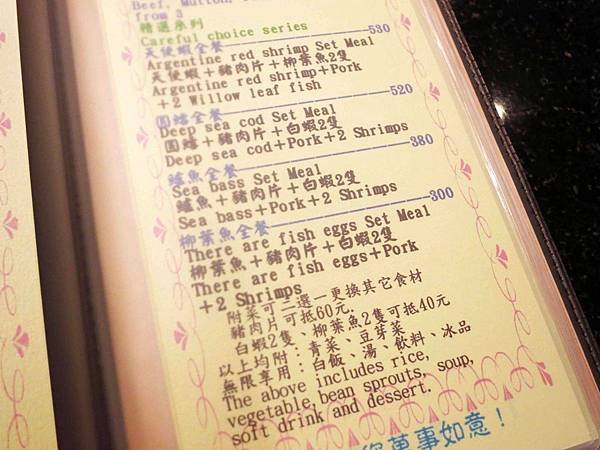 Beef, Mutton,
from 3
精選系列
Careful choice series
天使蝦全餐 530
Argentine red shrimp Set Meal
天使蝦＋豬肉片＋柳葉魚2隻
Argentine red shrimp＋Pork
＋2 Willow leaf fish
圓鱈全餐 520
Deep sea cod Set Meal
圓鱈＋豬肉片＋白蝦2隻
Deep sea cod＋Pork＋2 Shrimps
鱸魚全餐 380
Sea bass Set Meal
鱸魚＋豬肉片＋白蝦2隻
Sea bass＋Pork＋2 Shrimps
柳葉魚全餐 300
There are fish eggs Set Meal
柳葉魚＋豬肉片＋白蝦2隻
There are fish eggs＋Pork
＋2 Shrimps
附菜可二選一更換其它食材
豬肉片可抵60元,
白蝦2隻、柳葉魚2隻可抵40元
以上均附：青菜、豆芽菜
無限享用：白飯、湯、飲料、冰品
The above includes rice,
vegetable,bean sprouts, soup,
soft drink and dessert.
萬事如意！